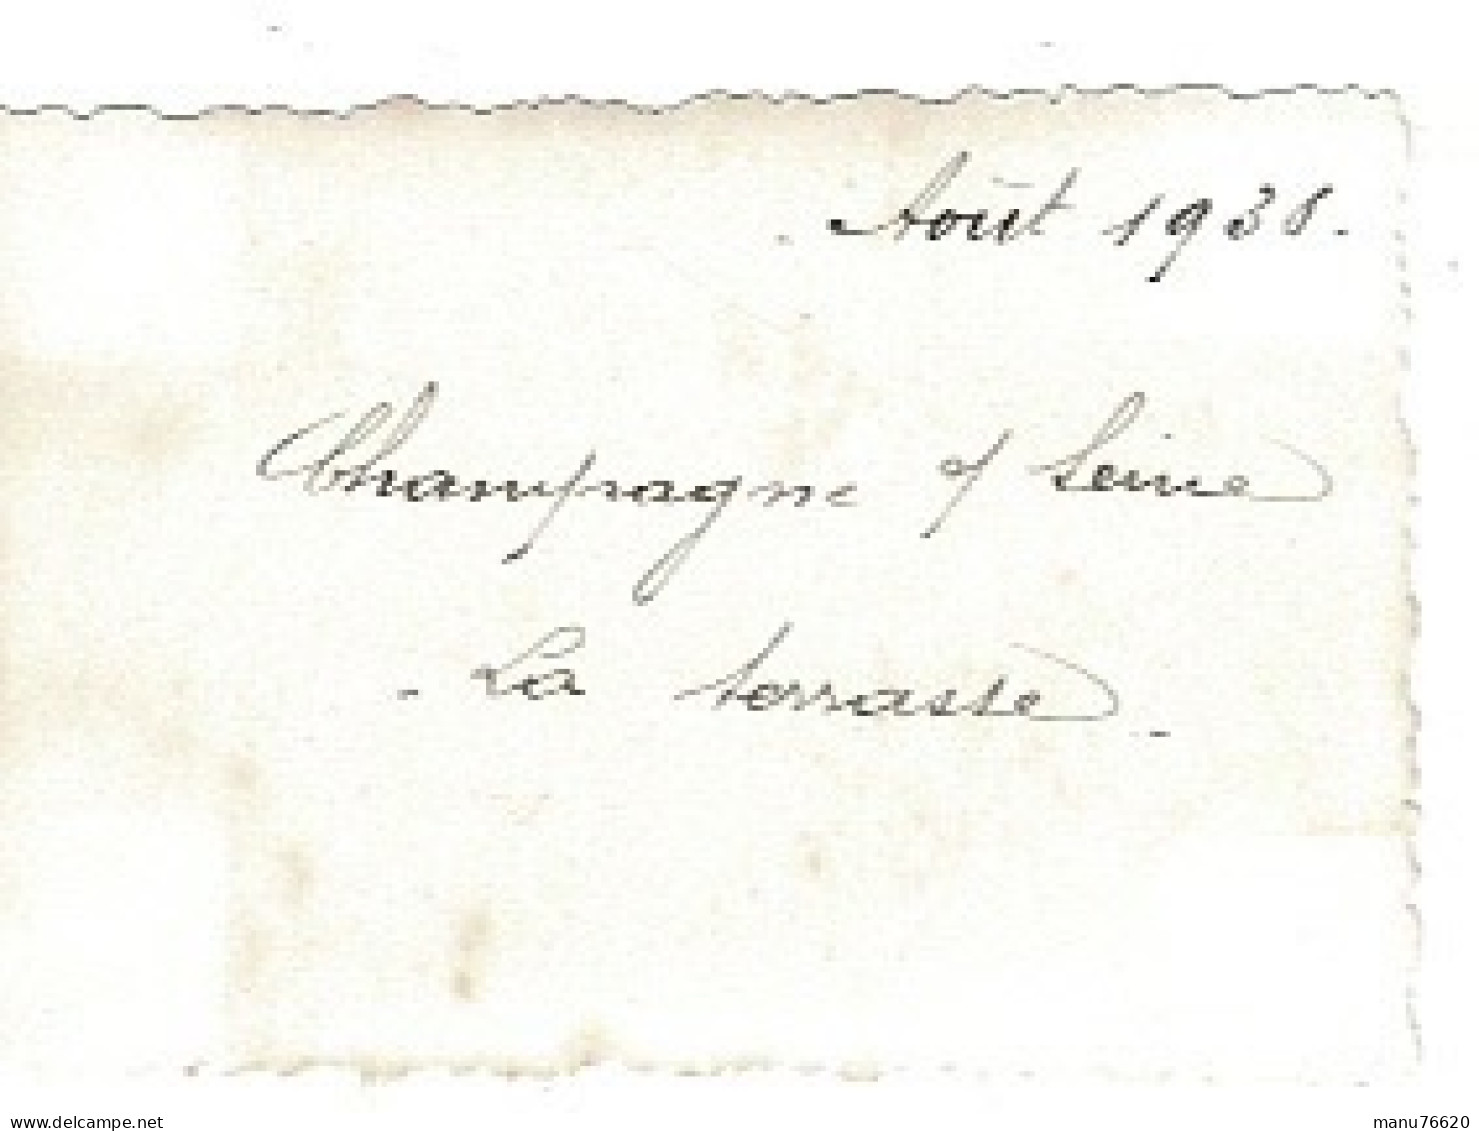 . Août 1938.
Champagne s/ Seine
- La terrasse -
delcampe.net
manu76620